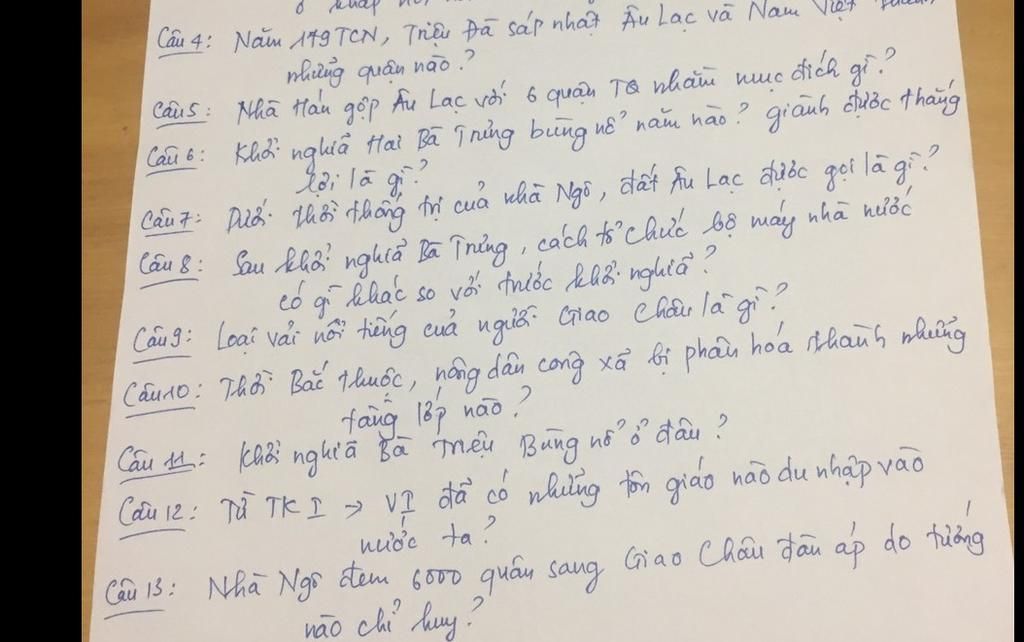 ở khắp nơi
Câu 4: Năm 179 TCN, Triệu Đà sáp nhập Âu Lạc và Nam Việt thành
những quận nào?
Câu 5: Nhà Hán gộp Âu Lạc với 6 quận TQ nhằm mục đích gì?
Câu 6: Khởi nghĩa Hai Bà Trưng bùng nổ năm nào? giành được thắng
lợi là gì?
Câu 7: Dưới thời thống trị của nhà Ngô, đất Âu Lạc được gọi là gì?
Câu 8: Sau khởi nghĩa Bà Trưng, cách tổ chức bộ máy nhà nước
có gì khác so với trước khởi nghĩa?
Câu 9: Loại vải nổi tiếng của người Giao Châu là gì?
Câu 10: Thời Bắc thuộc, nông dân công xã bị phân hóa thành những
tầng lớp nào?
Câu 11: Khởi nghĩa Bà Triệu Bùng nổ ở đâu?
Câu 12: Từ TK I → VI đã có những tôn giáo nào du nhập vào
nước ta?
Câu 13: Nhà Ngô đem 6000 quân sang Giao Châu đàn áp do tướng
nào chỉ huy?